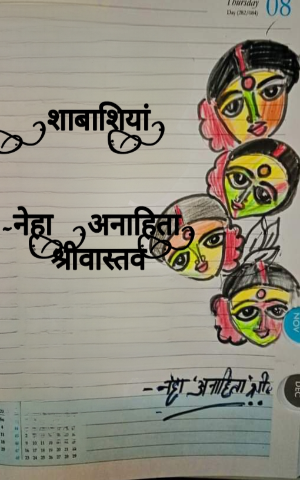 Thursday
08
Day (312/366)
शाबाशियां
~नेहा अनाहिता
श्रीवास्तव
NOV
DEC
- नेहा 'अनाहिता' श्री..